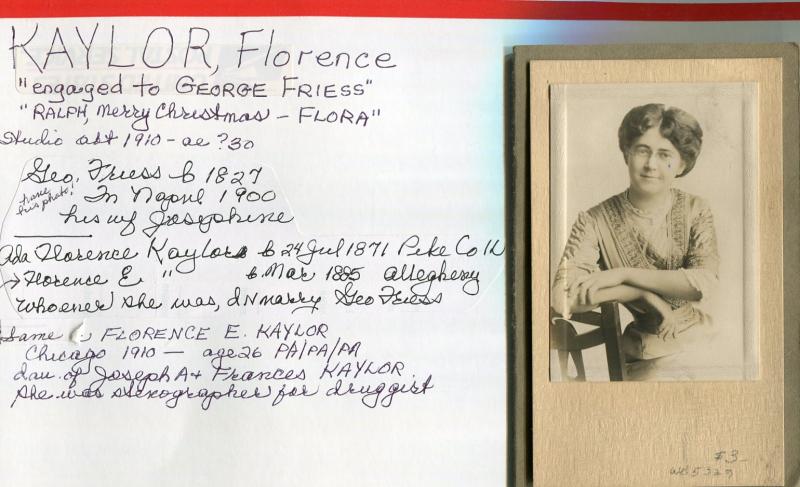 KAYLOR, Florence
"engaged to GEORGE FRIESS"
"RALPH, Merry Christmas - FLORA"
Studio abt 1910 - ae ?30
Geo. Friess b 1827
have his photo!
In Napvl 1900
his wf Josephine
Ada Florence Kaylor b 24 Jul 1871 Pike Co Il
→ Florence E. " b. Mar 1885 allegheny
whoever she was, dN marry Geo Friess
Same FLORENCE E. KAYLOR
Chicago 1910 - age 26 PA/PA/PA
dau. of Joseph A + Frances KAYLOR
she was stenographer for druggist
$3-